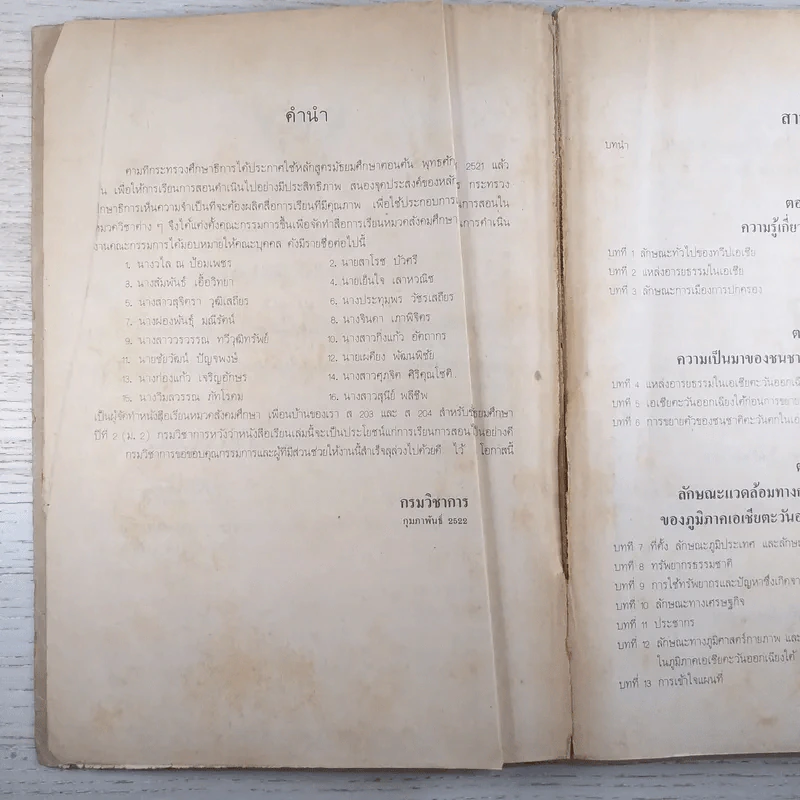 คำนำ
ตามที่กระทรวงศึกษาธิการได้ประกาศใช้หลักสูตรมัธยมศึกษาตอนต้น พุทธศัก 2521 แล้ว
นั้น เพื่อให้การเรียนการสอนดำเนินไปอย่างมีประสิทธิภาพ สนองจุดประสงค์ของหลักสู กระทรวง
ศึกษาธิการเห็นความจำเป็นที่จะต้องผลิตสื่อการเรียนที่มีคุณภาพ เพื่อใช้ประกอบการ การสอนใน
หมวดวิชาต่าง ๆ จึงได้แต่งตั้งคณะกรรมการขึ้นเพื่อจัดทำสื่อการเรียนหมวดสังคมศึกษา การดำเนิน
งานคณะกรรมการได้มอบหมายให้คณะบุคคล ดังมีรายชื่อต่อไปนี้
1. นางวไล ณ ป้อมเพชร 2. นายสาโรช บัวศรี
3. นางสัมพันธุ์ เอื้อวิทยา 4. นายเย็นใจ เลาหวณิช
5. นางสาวสุจิตรา วุฒิเสถียร 6. นางประทุมพร วัชรเสถียร
7. นางผ่องพันธุ์ มณีรัตน์ 8. นางจินดา เภาพิจิตร
9. นางสาววรวรรณ ทวีวุฒิทรัพย์ 10. นางสาวกิ่งแก้ว อัตถากร
11. นายชัยวัฒน์ ปัญจพงษ์ 12. นายเผดียง พัฒนพิชัย
13. นางก่องแก้ว เจริญอักษร 14. นางสาวศุภจิต ศิริคุณโชติ
15. นางวิมลวรรณ ภัทโรดม 16. นางสาวสุนีย์ พลีชีพ
เป็นผู้จัดทำหนังสือเรียนหมวดสังคมศึกษา เพื่อนบ้านของเรา ส 203 และ ส 204 สำหรับ มัธยมศึกษา
ปีที่ 2 (ม. 2) กรมวิชาการหวังว่าหนังสือเรียนเล่มนี้จะเป็นประโยชน์แก่การเรียนการสอน เป็นอย่างดี
กรมวิชาการขอขอบคุณกรรมการและผู้ที่มีส่วนช่วยให้งานนี้สำเร็จลุล่วงไปด้วยดี ไว้ โอกาสนี้
กรมวิชาการ
กุมภาพันธ์ 2522
สา
บทนำ
ตอ
ความรู้เกี่ย
บทที่ 1 ลักษณะทั่วไปของทวีปเอเชีย
บทที่ 2 แหล่งอารยธรรมในเอเชีย
บทที่ 3 ลักษณะการเมืองการปกครอง
ต
ความเป็นมาของชนชา
บทที่ 4 แหล่งอารยธรรมในเอเชียตะวันออกเฉีย
บทที่ 5 เอเชียตะวันออกเฉียงใต้ก่อนการขยาย
บทที่ 6 การขยายตัวของชนชาติตะวันตกในเอ
ต
ลักษณะแวดล้อมทาง
ของภูมิภาคเอเชียตะวันอ
บทที่ 7 ที่ตั้ง ลักษณะภูมิประเทศ และลักษ
บทที่ 8 ทรัพยากรธรรมชาติ
บทที่ 9 การใช้ทรัพยากรและปัญหาซึ่งเกิดจา
บทที่ 10 ลักษณะทางเศรษฐกิจ
บทที่ 11 ประชากร
บทที่ 12 ลักษณะทางภูมิศาสตร์กายภาพ และ
ในภูมิภาคเอเชียตะวันออกเฉียงใต้
บทที่ 13 การเข้าใจแผนที่